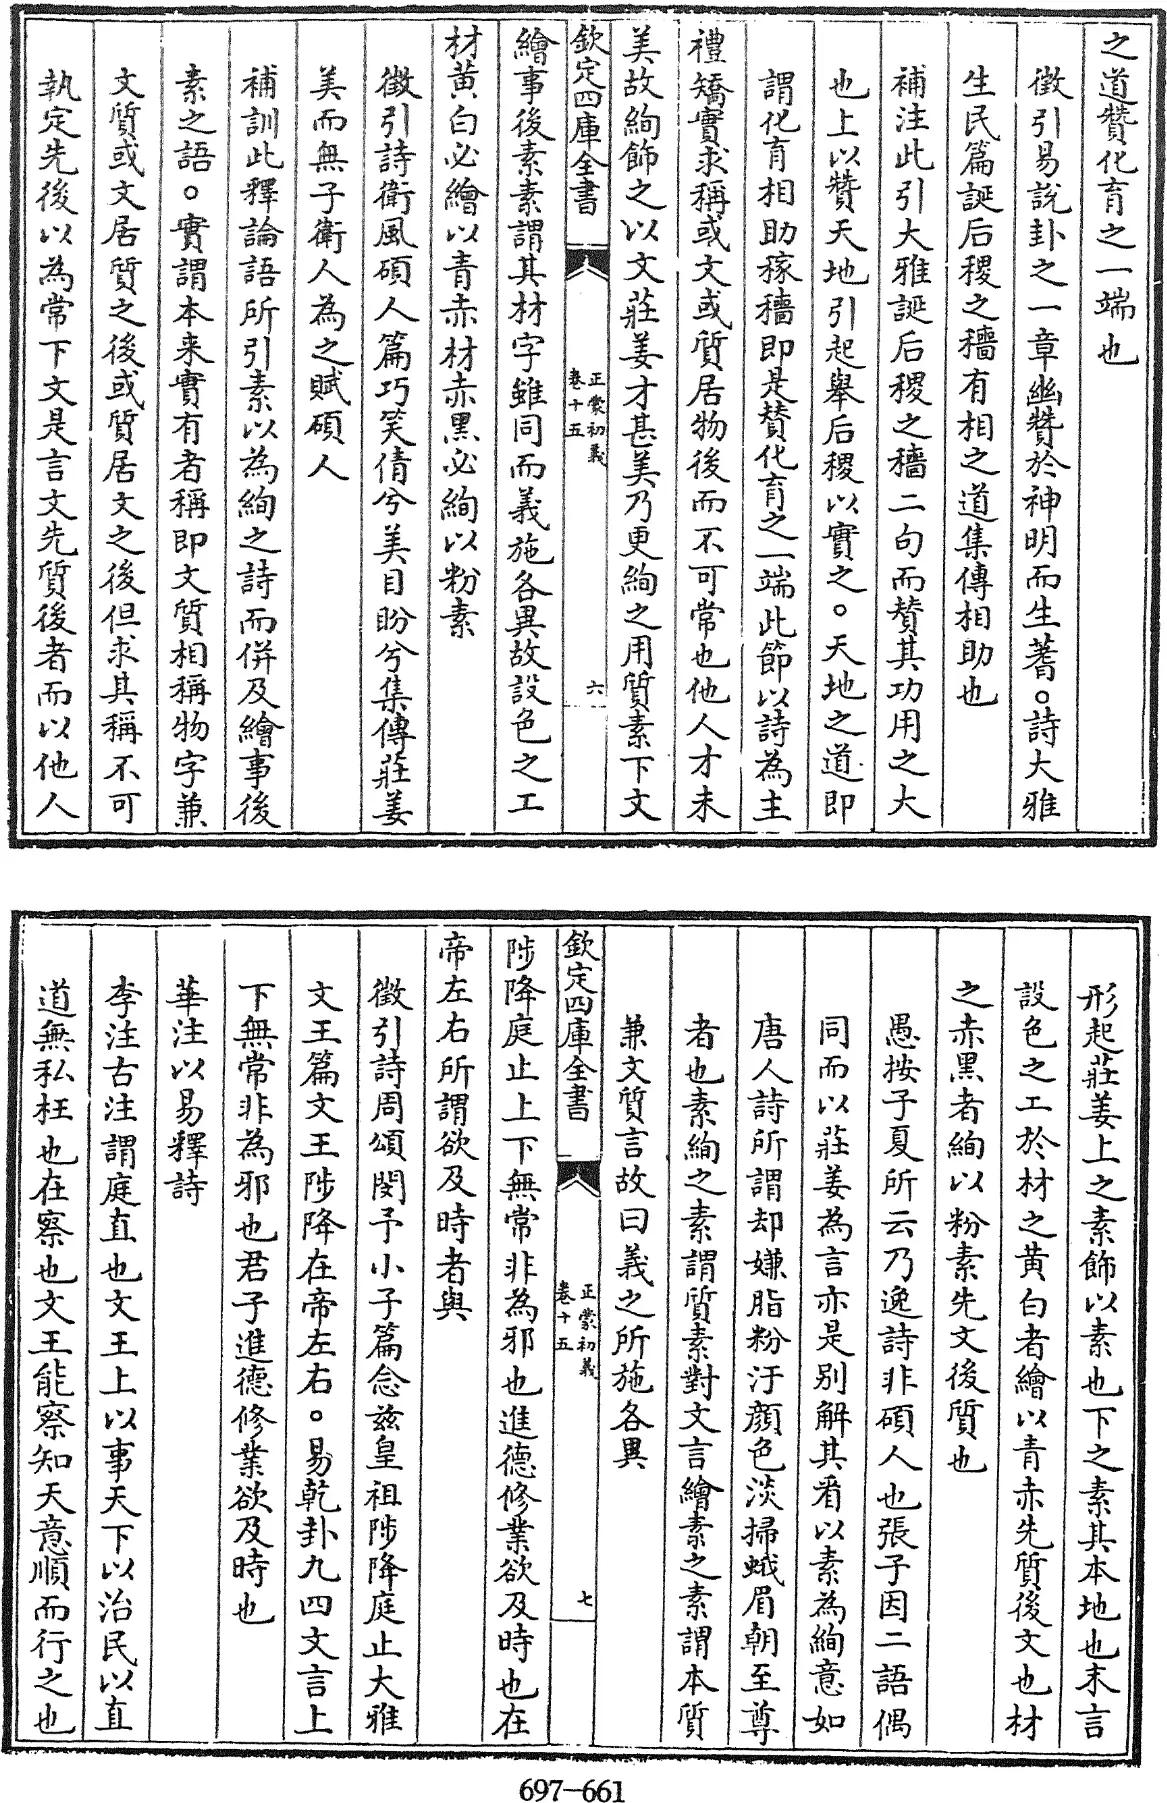 之道贊化育之一端也
徵引易說卦之一章幽贊於神明而生蓍。詩大雅
生民篇誕后稷之穡有相之道集傳相助也
補注此引大雅誕后稷之穡二句而贊其功用之大
也上以贊天地引起舉后稷以實之。天地之道即
謂化育相助稼穡即是贊化育之一端此節以詩為主
禮矯實求稱或文或質居物後而不可常也他人才未
美故絢飾之以文莊姜才甚美乃更絢之用質素下文
欽定四庫全書
正蒙初義
卷十五
六
繪事後素素謂其材字雖同而義施各異故設色之工
材黃白必繪以青赤材赤黑必絢以粉素
徵引詩衛風碩人篇巧笑倩兮美目盼兮集傳莊姜
美而無子衛人為之賦碩人
補訓此釋論語所引素以為絢之詩而併及繪事後
素之語。實謂本来實有者稱即文質相稱物字兼
文質或文居質之後或質居文之後但求其稱不可
執定先後以為常下文是言文先質後者而以他人
形起莊姜上之素飾以素也下之素其本地也末言
設色之工於材之黃白者繪以青赤先質後文也材
之赤黑者絢以粉素先文後質也
愚按子夏所云乃逸詩非碩人也張子因二語偶
同而以莊姜為言亦是別解其看以素為絢意如
唐人詩所謂却嫌脂粉汙顏色淡掃蛾眉朝至尊
者也素絢之素謂質素對文言繪素之素謂本質
兼文質言故曰義之所施各異
欽定四庫全書
正蒙初義
卷十五
七
陟降庭止上下無常非為邪也進德修業欲及時也在
帝左右所謂欲及時者與
徵引詩周頌閔予小子篇念茲皇祖陟降庭止大雅
文王篇文王陟降在帝左右。易乾卦九四文言上
下無常非為邪也君子進德修業欲及時也
華注以易釋詩
李注古注謂庭直也文王上以事天下以治民以直
道無私枉也在察也文王能察知天意順而行之也
697-661